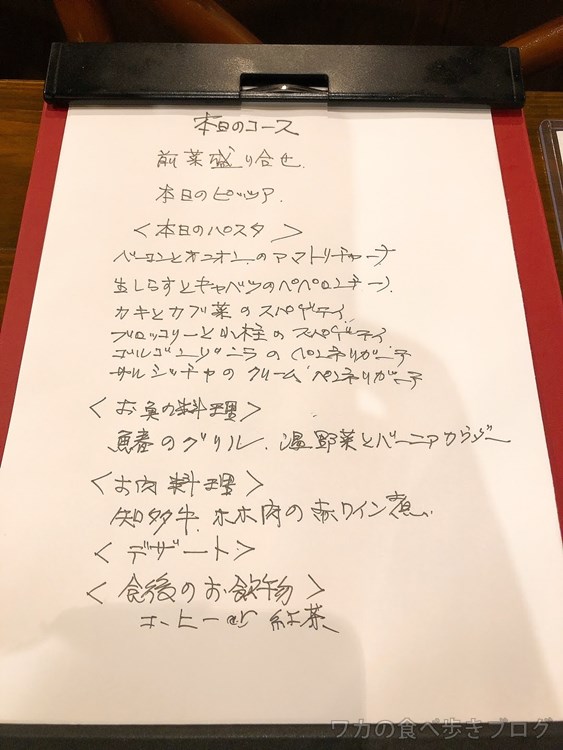 本日のコース
前菜盛り合せ.
本日のピッツァ.
<本日のパスタ>
ベーコンとオニオンのアマトリチャーナ
生しらすとキャベツのペペロンチーノ
カキとカブ菜のスパゲティ
ブロッコリーと小柱のスパゲティ
ゴルゴンゾーラのペンネリガーテ
サルシッチャのクリームペンネリガーテ
<お魚の料理>
鰆のグリル、温野菜とバーニアカウダー
<お肉料理>
知多牛ホホ肉の赤ワイン煮
<デザート>
<食後のお飲物>
コーヒー or 紅茶
ワカの食べ歩きブログ